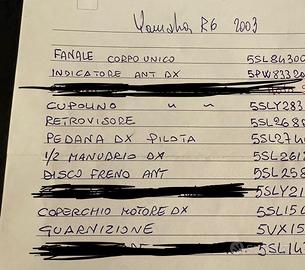 Yamaha R6 2003
FANALE CORPO UNICO 5SL84300
INDICATORE ANT DX 5PW8332
CUPOLINO " " 5SLY283
RETROVISORE 5SL2688
PEDANA DX PILOTA 5SL274
1/2 MANUBRIO DX 5SL261
DISCO FRENO ANT 5SL258
5SLY21
COPERCHIO MOTORE DX 5SL154
GUARNIZIONE 5VX15
5SL14